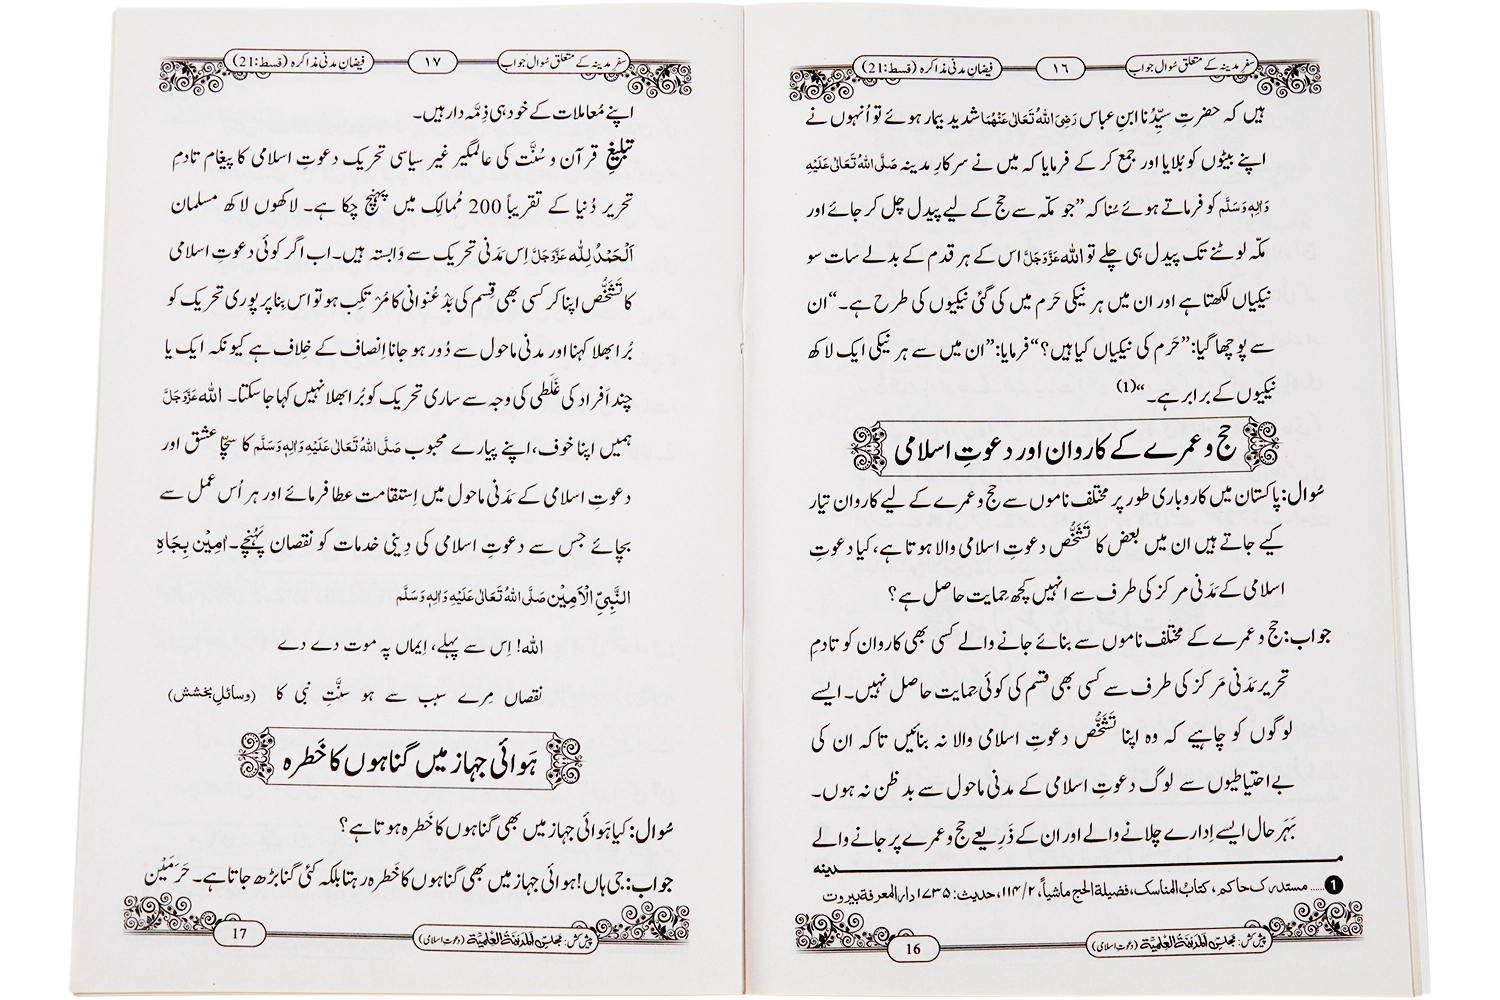 سفرِ مدینہ کے متعلق سُوال جواب ۱٦ فیضانِ مدنی مذاکرہ (قسط:21)
ہیں کہ حضرتِ سیِّدُنا ابنِ عباس رَضِیَ اللہُ تَعَالٰی عَنْہُمَا شدید بیمار ہوئے تو اُنہوں نے
اپنے بیٹوں کو بُلایا اور جمع کر کے فرمایا کہ میں نے سرکارِ مدینہ صَلَّی اللہُ تَعَالٰی عَلَیْہِ
وَاٰلِہٖ وَسَلَّم کو فرماتے ہوئے سُنا کہ ”جو مکّہ سے حج کے لیے پیدل چل کر جائے اور
مکّہ لوٹنے تک پیدل ہی چلے تو اللہ عَزَّوَجَلَّ اس کے ہر قدم کے بدلے سات سو
نیکیاں لکھتا ہے اور ان میں ہر نیکی حَرم میں کی گئی نیکیوں کی طرح ہے۔“ ان
سے پوچھا گیا: ”حَرم کی نیکیاں کیا ہیں؟“ فرمایا: ”ان میں سے ہر نیکی ایک لاکھ
نیکیوں کے برابر ہے۔“ (1)
حج و عمرے کے کاروان اور دعوتِ اسلامی
سُوال: پاکستان میں کاروباری طور پر مختلف ناموں سے حج و عمرے کے لیے کاروان تیار
کیے جاتے ہیں ان میں بعض کا تَشَخُّص دعوتِ اسلامی والا ہوتا ہے، کیا دعوتِ
اسلامی کے مَدَنی مرکز کی طرف سے انہیں کچھ حِمایت حاصل ہے؟
جواب: حج و عمرے کے مختلف ناموں سے بنائے جانے والے کسی بھی کاروان کو تادمِ
تحریر مَدَنی مَرکز کی طرف سے کسی بھی قسم کی کوئی حِمایت حاصل نہیں۔ ایسے
لوگوں کو چاہیے کہ وہ اپنا تَشَخُّص دعوتِ اسلامی والا نہ بنائیں تاکہ ان کی
بے احتیاطیوں سے لوگ دعوتِ اسلامی کے مدنی ماحول سے بد ظن نہ ہوں۔
بَہَرحال ایسے اِدارے چلانے والے اور ان کے ذَریعے حج و عمرے پر جانے والے
مدینہ
1 ..... مستدرک حاکم، کتاب المناسک، فضیلة الحج ماشیاً، ۲/۱۱۴، حدیث: ۱۷۳۵ دار المعرفة بیروت
پیش کش: مجلس المدینة العلمیة (دعوتِ اسلامی) 16
سفرِ مدینہ کے متعلق سُوال جواب ۱۷ فیضانِ مدنی مذاکرہ (قسط:21)
اپنے مُعاملات کے خود ہی ذِمَّہ دار ہیں۔
تبلیغِ قرآن و سُنَّت کی عالمگیر غیر سیاسی تحریک دعوتِ اسلامی کا پیغام تادمِ
تحریر دُنیا کے تقریباً 200 مُمالِک میں پہنچ چکا ہے۔ لاکھوں لاکھ مسلمان
اَلْحَمْدُ لِلّٰہ عَزَّوَجَلَّ اِس مَدَنی تحریک سے وَابستہ ہیں۔ اب اگر کوئی دعوتِ اسلامی
کا تَشَخُّص اپنا کر کسی بھی قِسم کی بَدْ عُنوانی کا مُرْتَکِب ہو تو اس بِنا پر پوری تحریک کو
بُرا بھلا کہنا اور مدنی ماحول سے دُور ہو جانا اِنصاف کے خِلاف ہے کیونکہ ایک یا
چند اَفراد کی غَلَطی کی وجہ سے ساری تحریک کو بُرا بھلا نہیں کہا جا سکتا۔ اللہ عَزَّوَجَلَّ
ہمیں اپنا خوف، اپنے پیارے محبوب صَلَّی اللہُ تَعَالٰی عَلَیْہِ وَاٰلِہٖ وَسَلَّم کا سچّا عشق اور
دعوتِ اسلامی کے مَدَنی ماحول میں اِستقامت عطا فرمائے اور ہر اُس عمل سے
بچائے جس سے دعوتِ اسلامی کی دِینی خدمات کو نقصان پَہُنچے۔ اٰمِیْن بِجَاہِ
النَّبِیِّ الْاَمِیْن صَلَّی اللہُ تَعَالٰی عَلَیْہِ وَاٰلِہٖ وَسَلَّم
اللہ! اِس سے پہلے، اِیماں پہ موت دے دے
نقصاں مِرے سبب سے ہو سنَّتِ نبی کا (وسائلِ بخشش)
ہَوائی جہاز میں گناہوں کا خَطرہ
سُوال: کیا ہَوائی جہاز میں بھی گناہوں کا خَطرہ ہوتا ہے؟
جواب: جی ہاں! ہوائی جہاز میں بھی گناہوں کا خَطرہ رہتا بلکہ کئی گنا بڑھ جاتا ہے۔ حَرَمَیْن
پیش کش: مجلس المدینة العلمیة (دعوتِ اسلامی) 17